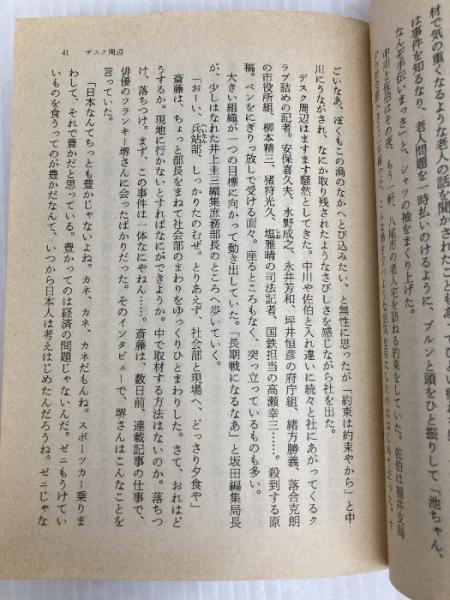 材で気の重くなるような老人の話を聞かされたこともあ
は事件を知るなり、老人問題を一時払いのけるように、ブルンと頭をひと振りして「池ちゃん、
なんぞ手伝いまっさ」と、シャツの袖をまくり上げた。
中川と佐伯はその夜、もう一軒、八尾市の老人宅を訪ねる約束をしていた。佐伯は福井支局
41 デスク周辺
ごいなあ、ぼくもこの渦のなかへとび込みたい、と無性に思ったが「約束は約束やから」と中
川にうながされ、なにか取り残されたようなさびしさを感じながら社を出た。
デスク周辺はますます騒然としてきた。中川や佐伯と入れ違いに続々と社にあがってくるク
ラブ詰めの記者。安保喜久夫、水野成之、永井芳和、坪井恒彦の府庁組、緒方勝義、落合克朗
の市役所組、柳本精三、猪狩光久、塩雅晴の司法記者、国鉄担当の高瀬幸三……。殺到する原
稿。ペンをにぎりっ放しで受ける面々。座るところもなく、突っ立っているものも多い。
大きい組織が一つの目標に向かって動き出していた。「長期戦になるなあ」と坂田編集局長
が、少しはなれた井上圭三編集庶務部長のところへ歩いていく。
「おーい、兵站部、しっかりたのむぜ。とりあえず、社会部と現場へ、どっさり夕食や」
へいたん
斎藤は、ちょっと部長をまねて社会部のまわりをゆっくりひとまわりした。さて、おれはど
うするか。現地に行かないとすればなにができようか。中で取材する方法はないのか。落ちつ
け、落ちつけ。まず、この事件は一体なにやねん……。斎藤は、数日前、連載記事の仕事で、
俳優のフランキー堺さんに会ったばかりだった。そのインタビューで、堺さんはこんなことを
言っていた。
「日本なんてちっとも豊かじゃないよね。カネ、カネ、カネだもんね。スポーツカー乗りま
わして、それで豊かだと思っている。豊かってのは経済の問題じゃないんだ。ゼニもうけてい
いものを食うってのが豊かだなんて、いつから日本人は考えはじめたんだろうね。ゼニじゃな